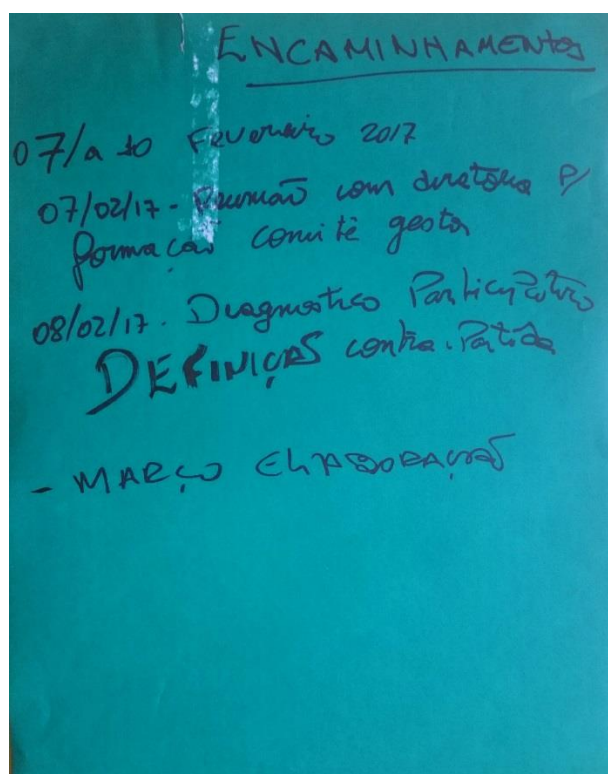 ENCAMINHAMENTOS
07/a 10 Fevereiro 2017
07/02/17 - Reunião com diretoria P/
formação comitê gestor
08/02/17. Diagnostico Participativo
DEFINIÇÃO contra.Partida
- MARÇO ELABORAÇÃO